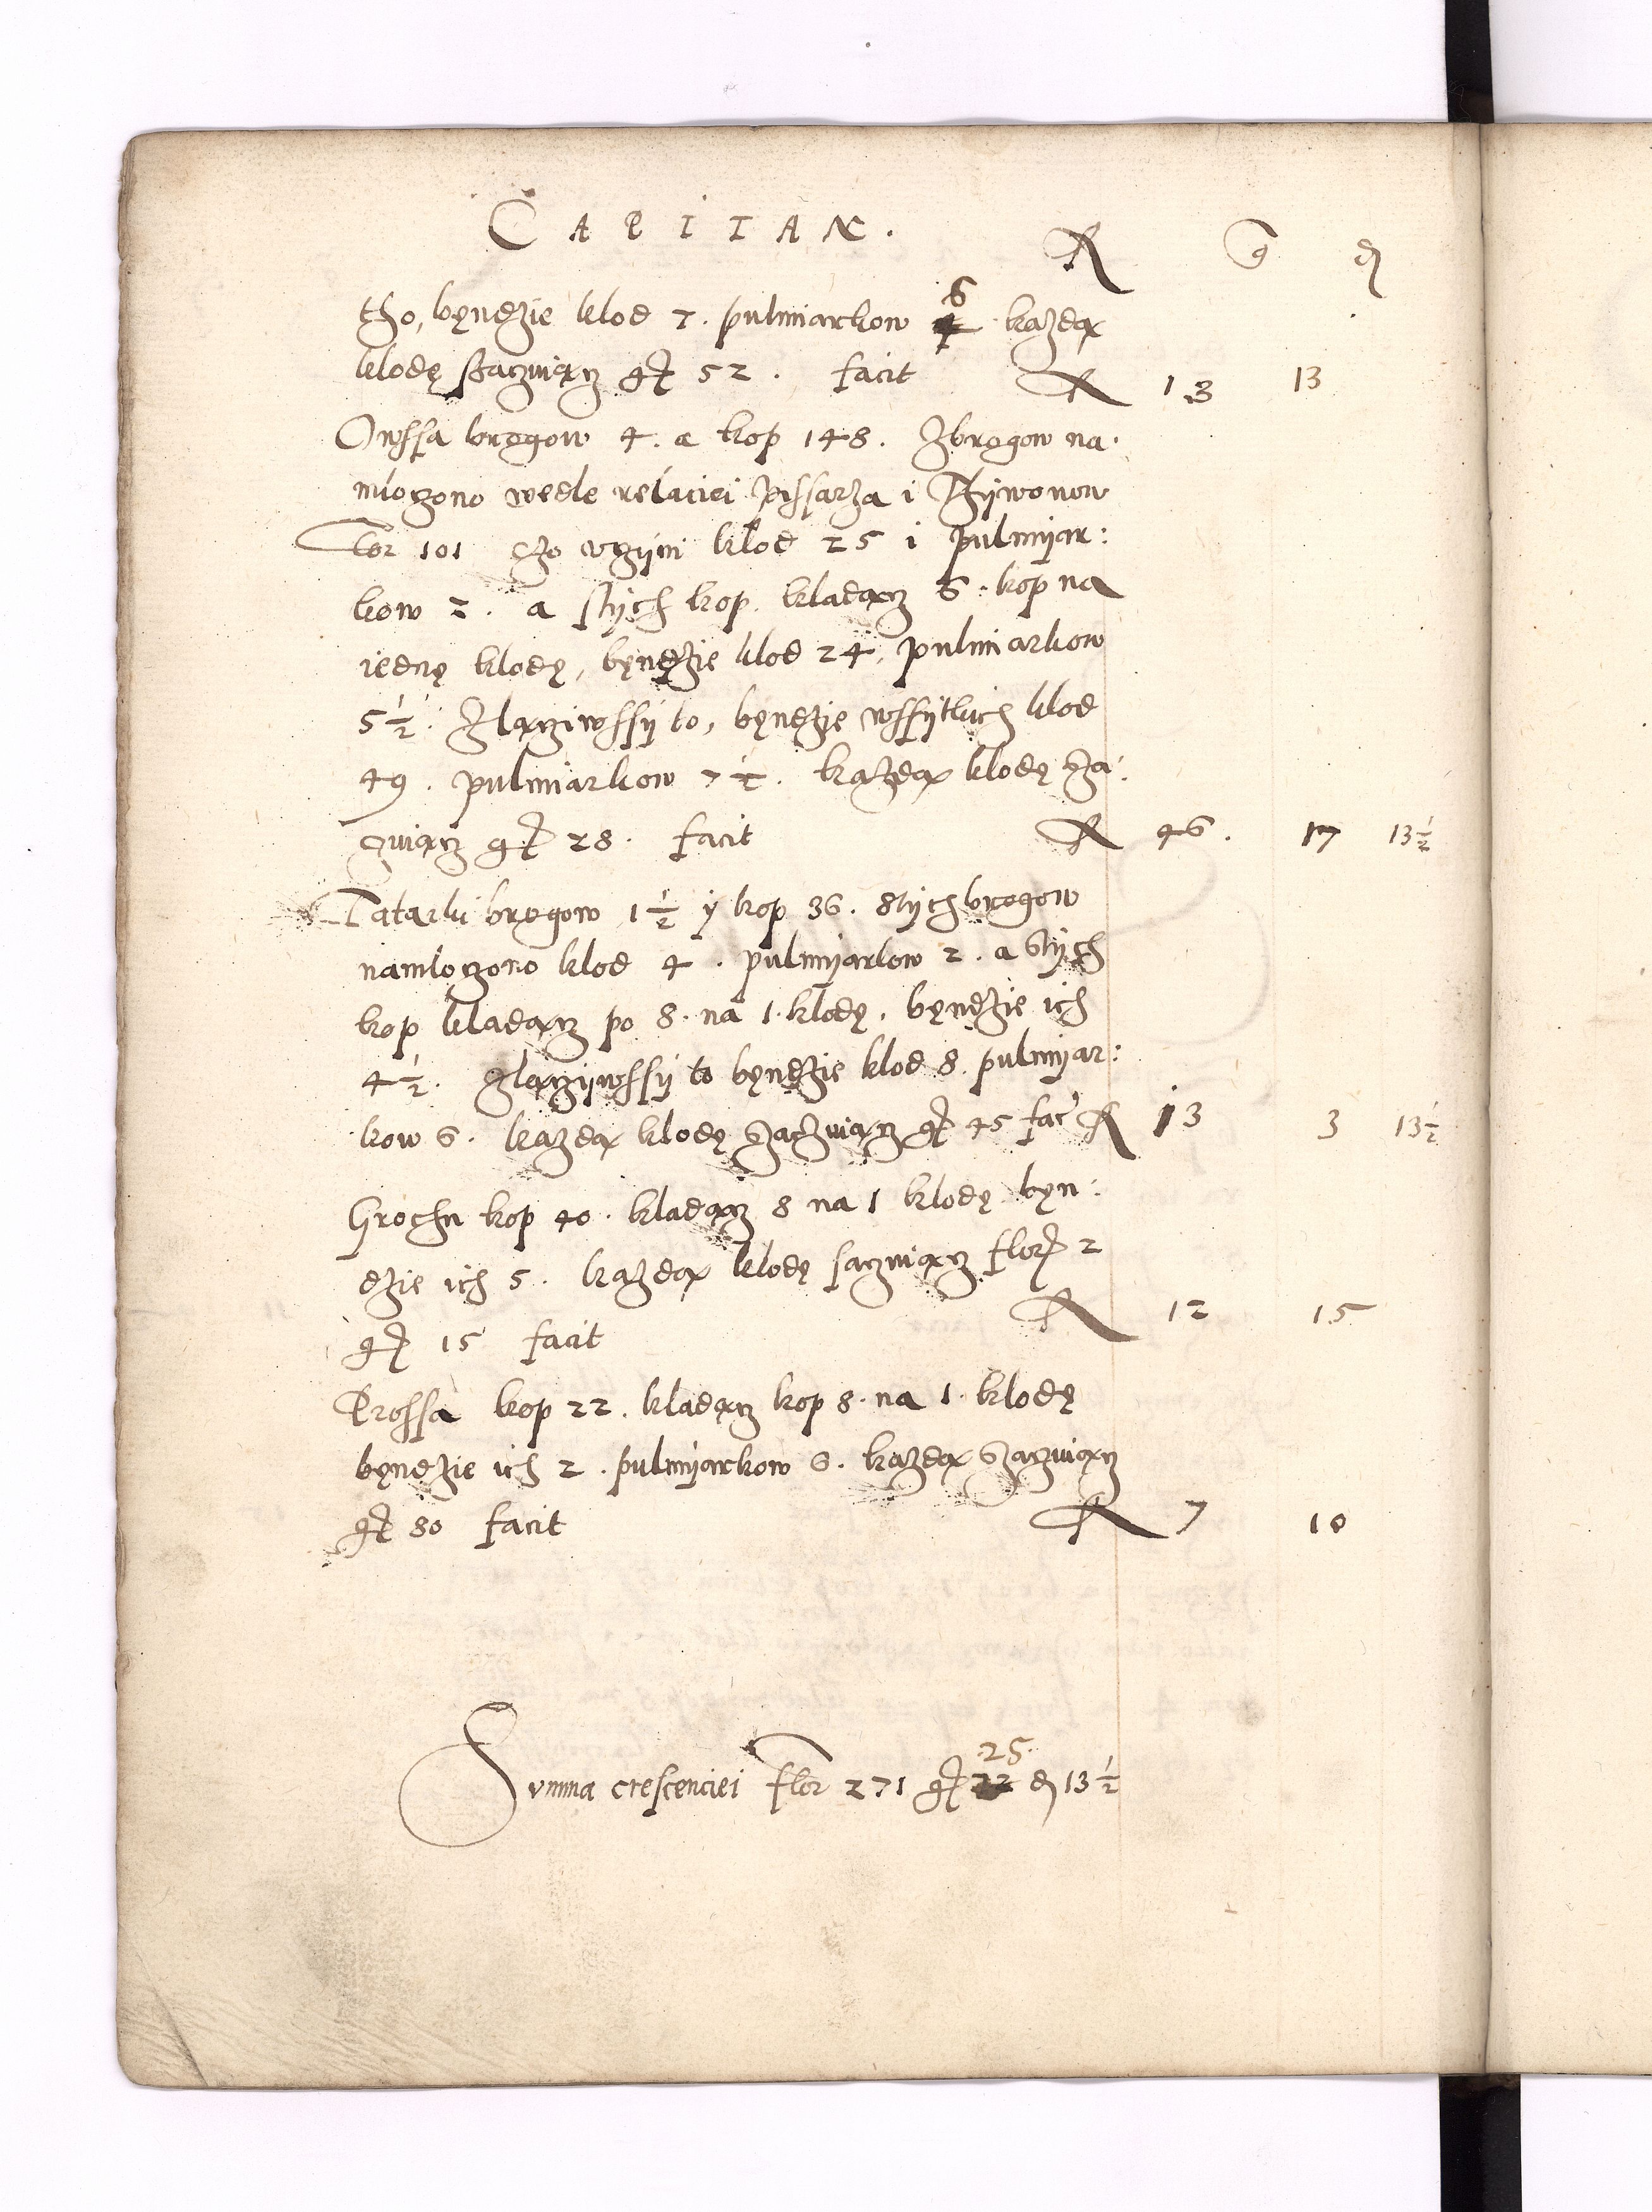 CAPITAN.
R g d
tho, będzie klod 7. pulmiarkow 6 kazdą
klodę szacuiącz gr 52. facit R 13 13
Owssa brogow 4. a kop 148. Zbrogow na:
mloczono wedle relaciei Pissarza i
Cor 101 czo vczyni klod 25 i pulmyar:
kow 2. a stych kop. kladącz 6. kop na
iednę klodę, bęndzie klod 24, pulmiarkow
5 1/2. Zlącziwssy to, bęndzie wssytkich klod
49. pulmiarkow 7 1/2. kazdą klodę Sza:
czuiącz gr 28. facit R 46. 17 13 1/2
Tatarki brogow 1 1/2 y kop 36. Stych brogow
namloczono klod 4. pulmyarkow 2. a Stych
kop kladącz po 8. na 1. klodę, bęndzie ich
4 1/2. Zlączywssy to bęndzie klod 8. pulmyar:
kow 6. kazdą klodę szaczuiącz gr 45 fac R 13 3 13 1/2
Grochu kop 40. kladącz 8 na 1 klodę bęn:
dzie ich 5. kazdą klodę saczuiącz flor 2
gr 15 facit R 12 15
Prossa kop 22. kladącz kop 8. na 1. klodę
bęndzie ich 2. pulmyarkow 6. kazdą Szaczuiącz
gr 80 facit R 7 10
Svmma crescenciei flor 271 gr 25 d 13 1/2